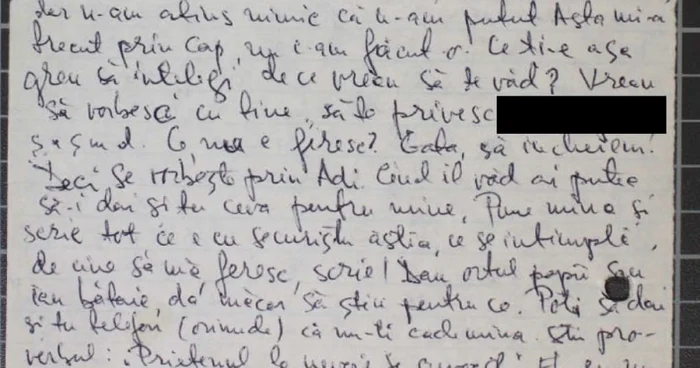 dar n-am atins nimic că n-am putut Asta mi-a
trecut prin cap, nu i-am făcut-o. Ce ti-e așa
greu să înțelegi de ce vreau să te văd? Vreau
să vorbesc cu tine, să te privesc
ș.a.m.d. Ce nu e firesc? Gata, să încheiem!
Deci se vorbește prin Adi. Cînd îl văd ai putea
să-i dai și tu ceva pentru mine, Pune mîna și
scrie tot ce e cu securiștii ăștia, ce se întîmplă,
de cine să mă feresc, scrie! Dau ortul popii sau
iau bătaie, da' măcar să știu pentru ce. Poți să dai
și tu telefon (oriunde) că nu-ți cade mîna. Știi pro-
verbul: „Prietenul la nevoie se